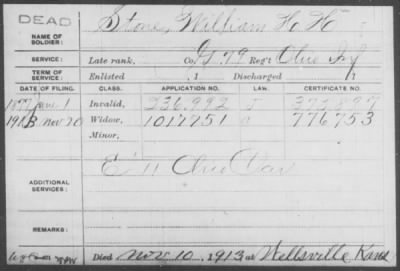 DEAD
Stone, William H. H.
NAME OF SOLDIER:
SERVICE: Late rank, Co. G 79 Reg't Ohio Inf
TERM OF SERVICE: Enlisted , 1 Discharged , 1
DATE OF FILING. CLASS. APPLICATION NO. LAW. CERTIFICATE NO.
1877 Jan. 1 Invalid, 236.992
1913 Nov 20 Widow, 1017751 776753
Minor,
ADDITIONAL SERVICES: Ohio Cav
REMARKS:
Died Nov 10, 1913 at Wellsville, Kans